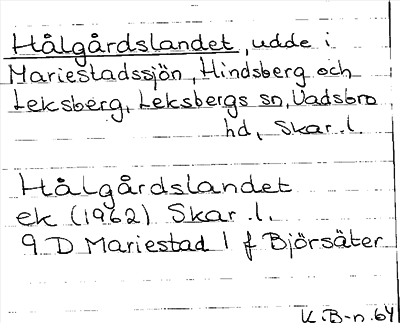 Hålgårdslandet, udde i
Mariestadssjön, Hindsberg och
Leksberg, Leksbergs sn, Vadsbro
hd, Skar. l.
Hålgårdslandet
ek (1962) Skar. l.
9 D Mariestad 1 f Björsäter
K.B-n. 64